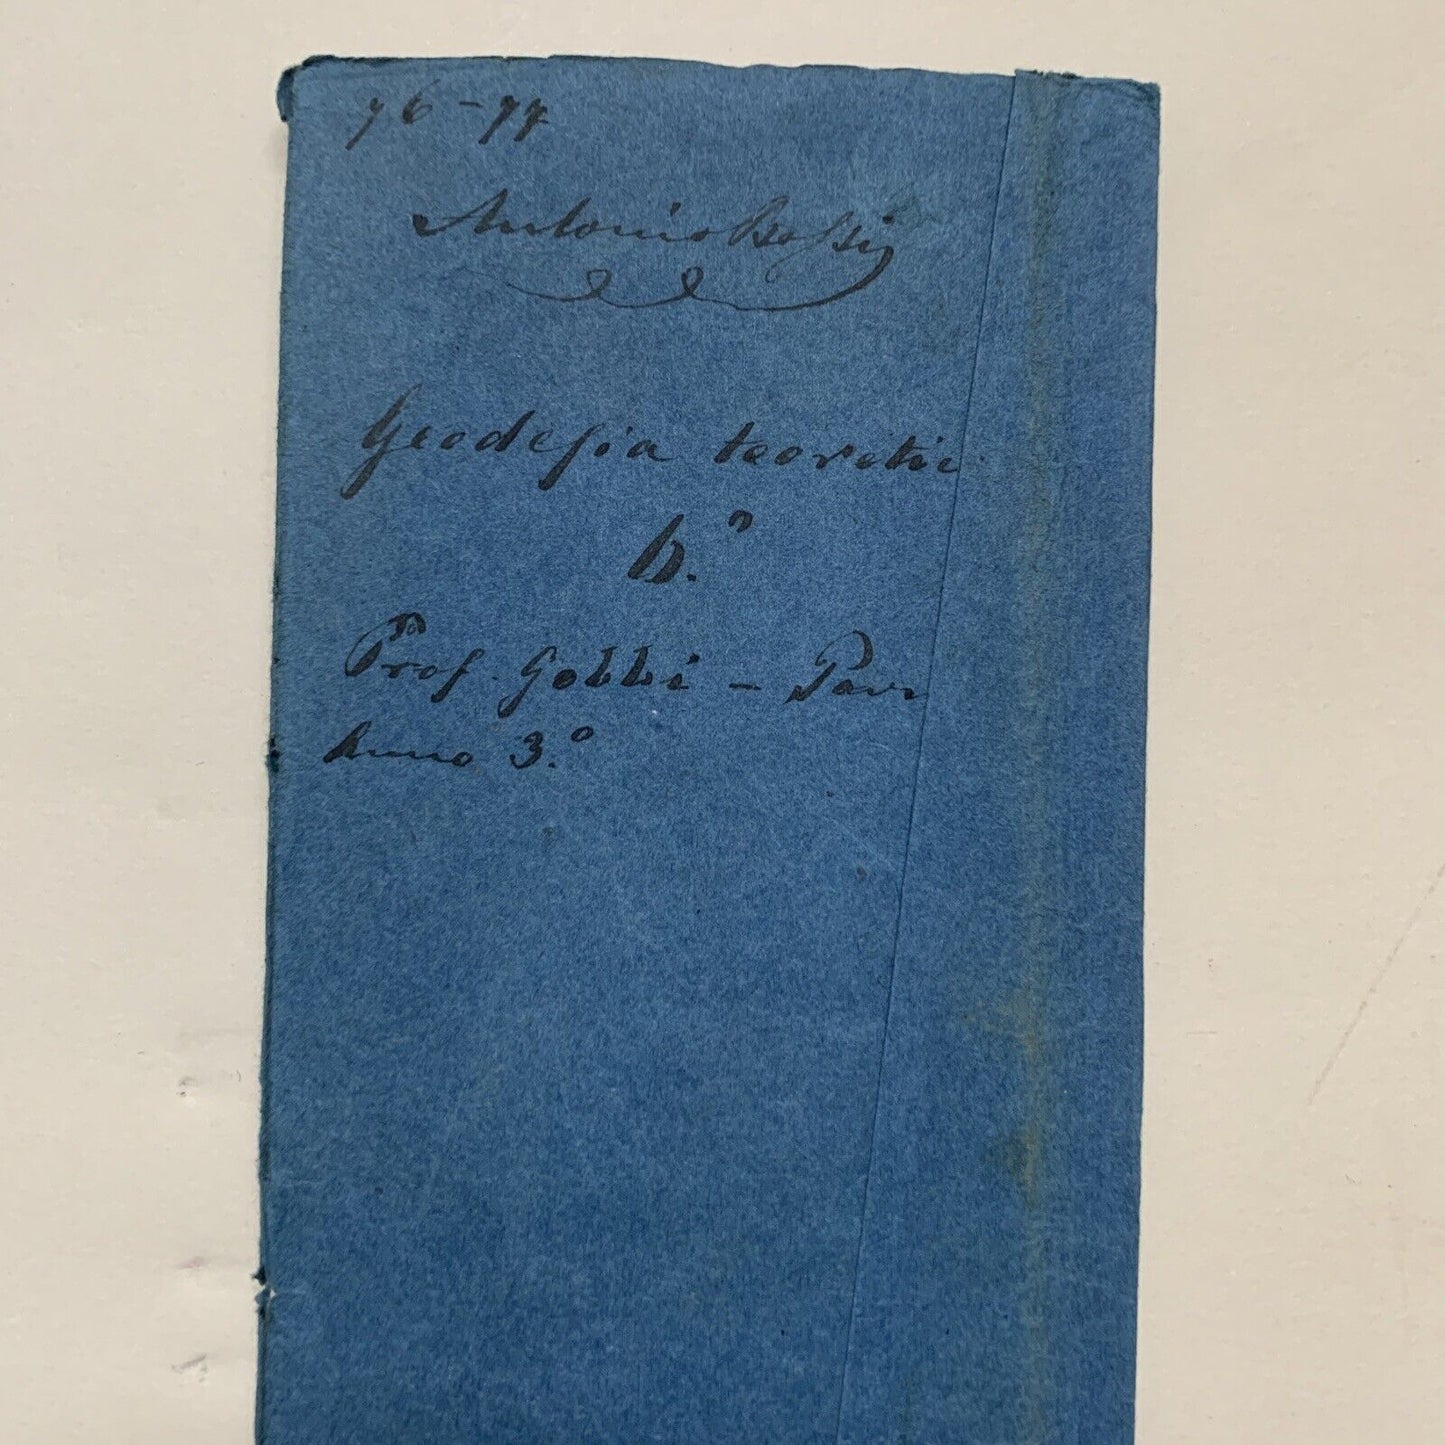 76-77
Antonio Bossi
Geodesia teoretic
b.°
Prof. Gobbi - Pav
Anno 3.°